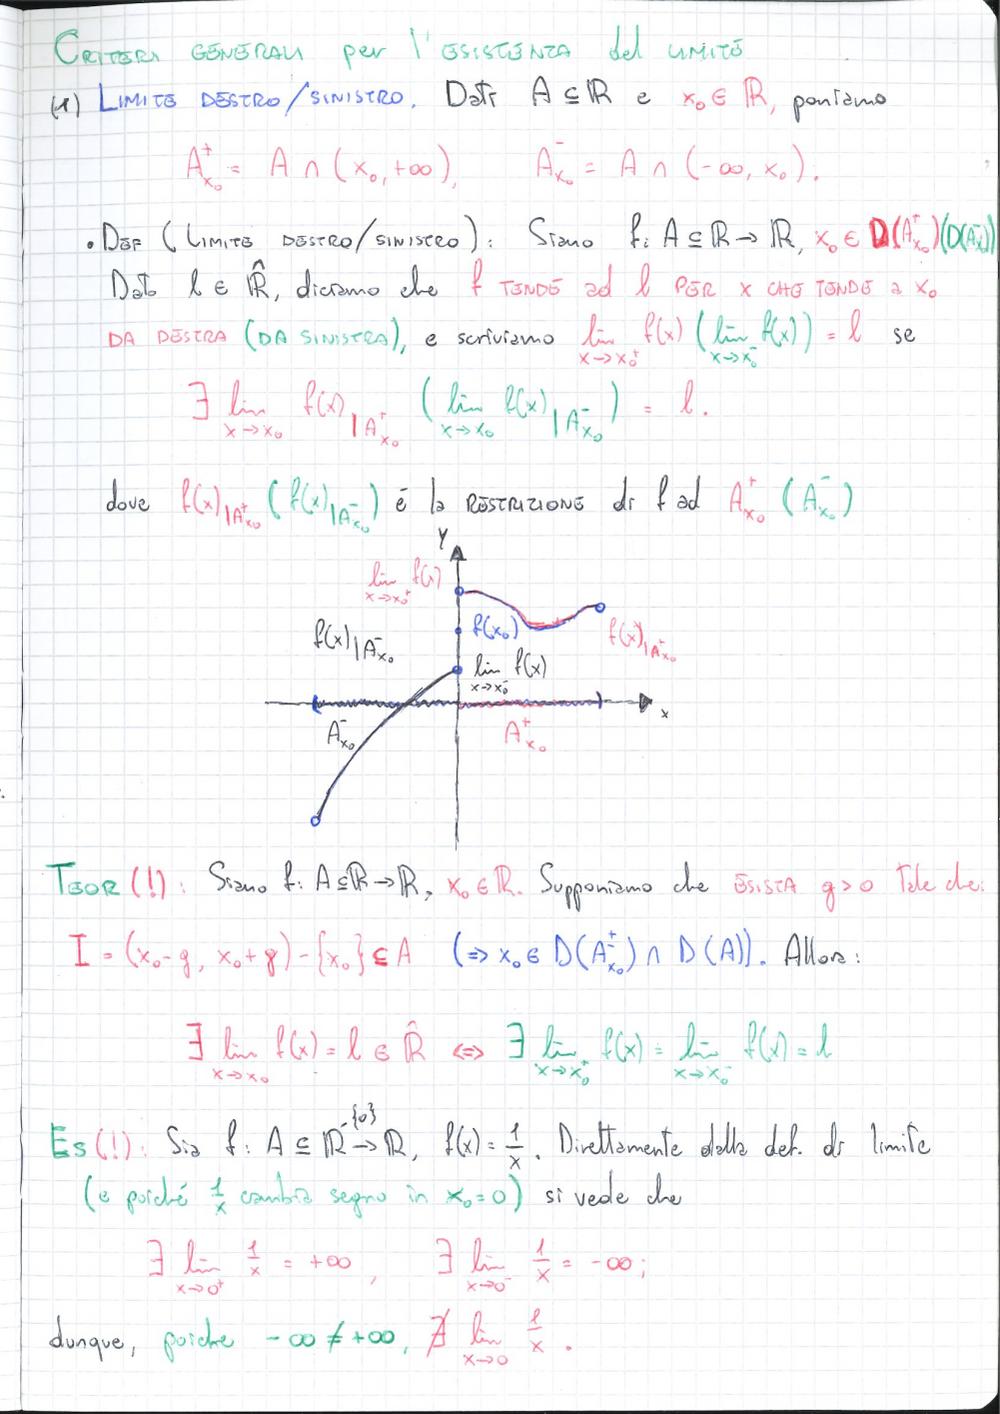 CRITERI GENERALI per l'ESISTENZA del LIMITE
(1) LIMITE DESTRO/SINISTRO. Dati A ⊆ ℝ e x₀ ∈ ℝ, poniamo
A⁺ₓ₀ = A ∩ (x₀, +∞), A⁻ₓ₀ = A ∩ (-∞, x₀).
• DEF (LIMITE DESTRO/SINISTRO): Siano f: A ⊆ ℝ → ℝ, x₀ ∈ D(A⁺ₓ₀) (D(A⁻ₓ₀))
Dato l ∈ ℝ̂, diciamo che f TENDE ad l PER x CHE TENDE a x₀
DA DESTRA (DA SINISTRA), e scriviamo lim x→x₀⁺ f(x) (lim x→x₀⁻ f(x)) = l se
∃ lim x→x₀ f(x)|A⁺ₓ₀ (lim x→x₀ f(x)|A⁻ₓ₀) = l.
dove f(x)|A⁺ₓ₀ (f(x)|A⁻ₓ₀) é la RESTRIZIONE di f ad A⁺ₓ₀ (A⁻ₓ₀)
y
lim x→x₀⁺ f(x)
f(x₀)
f(x)|A⁺ₓ₀
f(x)|A⁻ₓ₀
lim x→x₀⁻ f(x)
x
A⁻ₓ₀
A⁺ₓ₀
TEOR (!): Siano f: A ⊆ ℝ → ℝ, x₀ ∈ ℝ. Supponiamo che ESISTA g > 0 tale che:
I = (x₀ - g, x₀ + g) - {x₀} ⊆ A (⇒ x₀ ∈ D(A⁺ₓ₀) ∩ D(A)). Allora:
∃ lim x→x₀ f(x) = l ∈ ℝ̂ ⇔ ∃ lim x→x₀⁺ f(x) = lim x→x₀⁻ f(x) = l
ES (!): Sia f: A ⊆ ℝ-{0} → ℝ, f(x) = 1/x. Direttamente dalla def. di limite
(e poiché 1/x cambia segno in x₀ = 0) si vede che
∃ lim x→0⁺ 1/x = +∞, ∃ lim x→0⁻ 1/x = -∞;
dunque, poiche -∞ ≠ +∞, ∄ lim x→0 1/x.